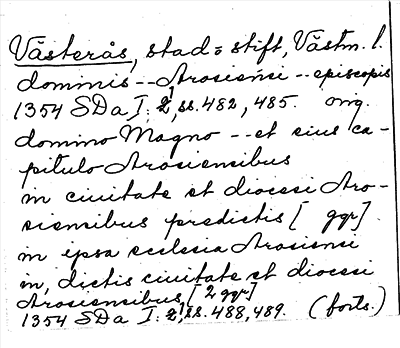 Västerås, stad o stift, Västm. l.
dominis -- Arosiensi -- episcopis
1354 SDa I: 2, ss. 482, 485. orig.
domino Magno -- et eius ca-
pitulo Arosiensibus
in ciuitate et diocesi Aro-
siensibus predictis [ ggr].
in ipsa ecclesia Arosiensi
in, dictis ciuitate et diocesi
Arosiensibus, [2 ggr]
1354 SDa I: 2, ss. 488, 489. (forts.)